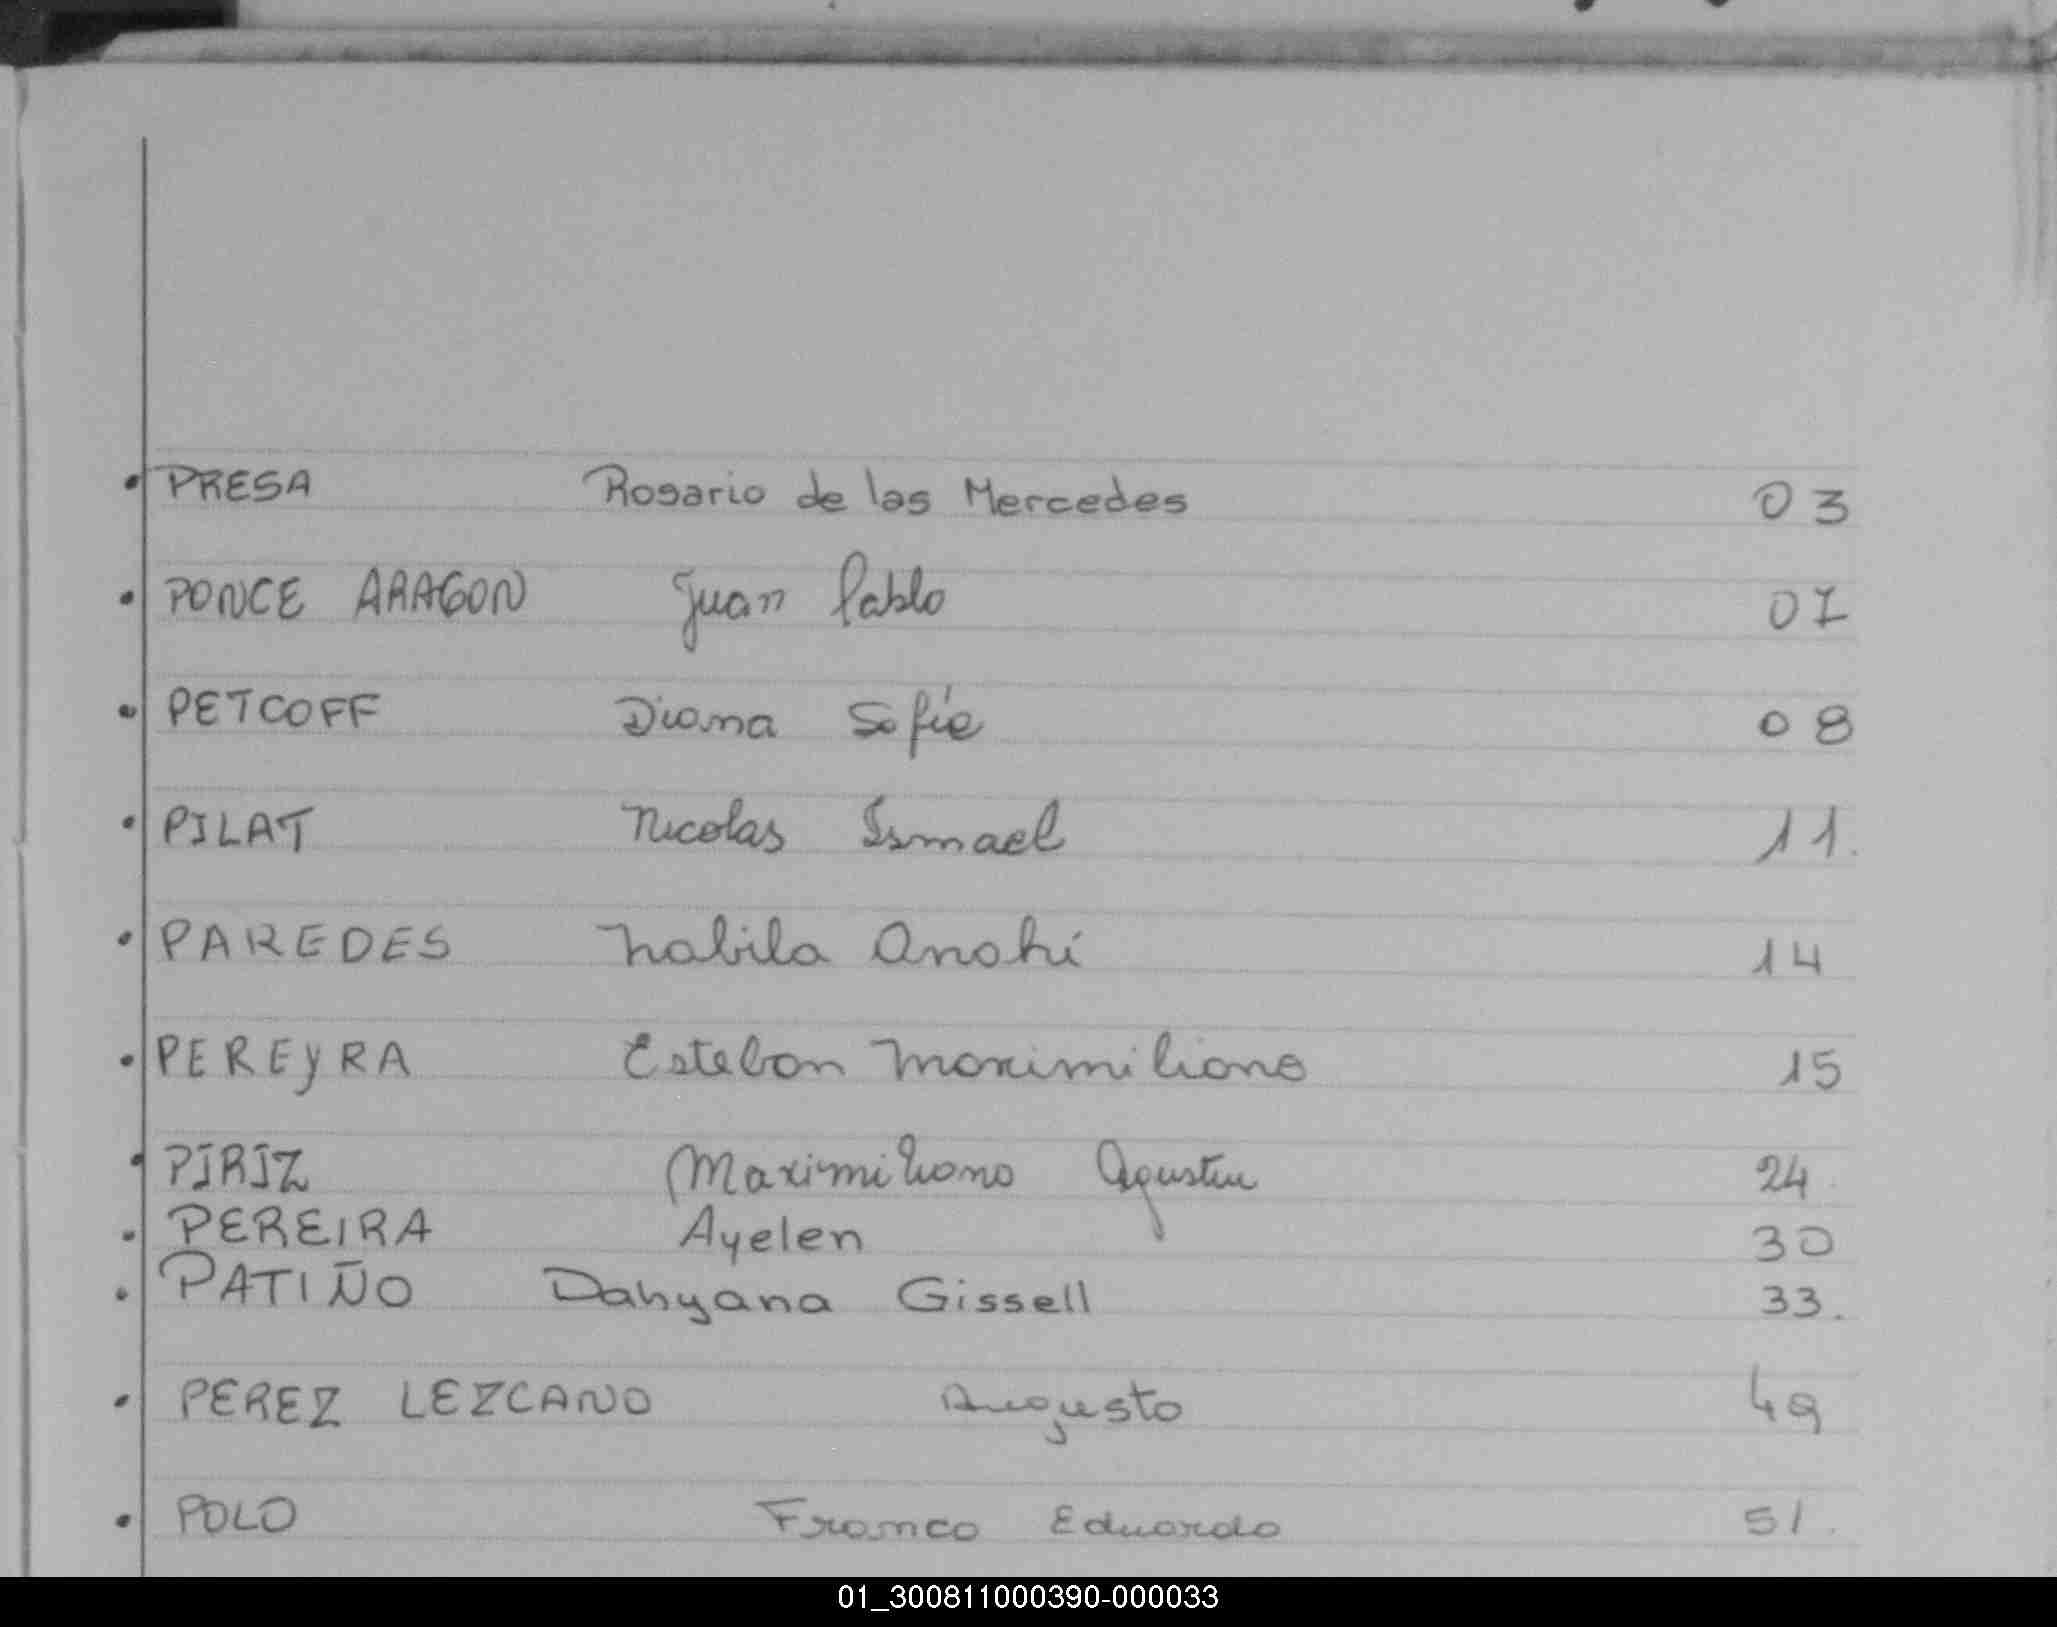 PRESA Rosario de las Mercedes 03
PONCE ARAGON Juan Pablo 07
PETCOFF Diana Sofía 08
PILAT Nicolas Ismael 11.
PAREDES Nabila Anahí 14
PEREYRA Esteban Maximiliano 15
PIRIZ Maximiliano Agustin 24.
PEREIRA Ayelen 30
PATIÑO Dahyana Gissell 33.
PEREZ LEZCANO Augusto 49
POLO Franco Eduardo 51.
01_300811000390-000033